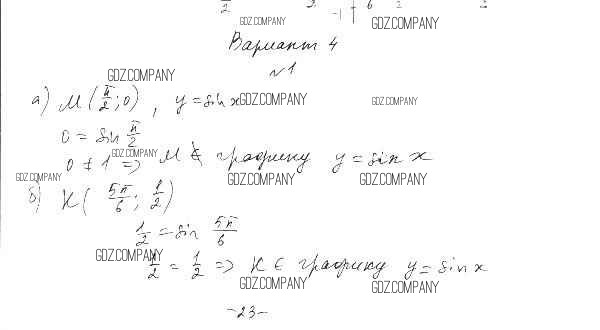 GDZ.COMPANY
GDZ.COMPANY
Вариант 4
GDZ.COMPANY
№1
а) М(π/2; 0), y = sin x GDZ.COMPANY GDZ.COMPANY
0 = sin π/2
0 ≠ 1 => GDZ.COMPANY М ∉ графику y = sin x
GDZ.COMPANY GDZ.COMPANY GDZ.COMPANY
б) К(5π/6; 1/2)
1/2 = sin 5π/6
GDZ.COMPANY
1/2 = 1/2 => К ∈ графику y = sin x
GDZ.COMPANY GDZ.COMPANY
-23-